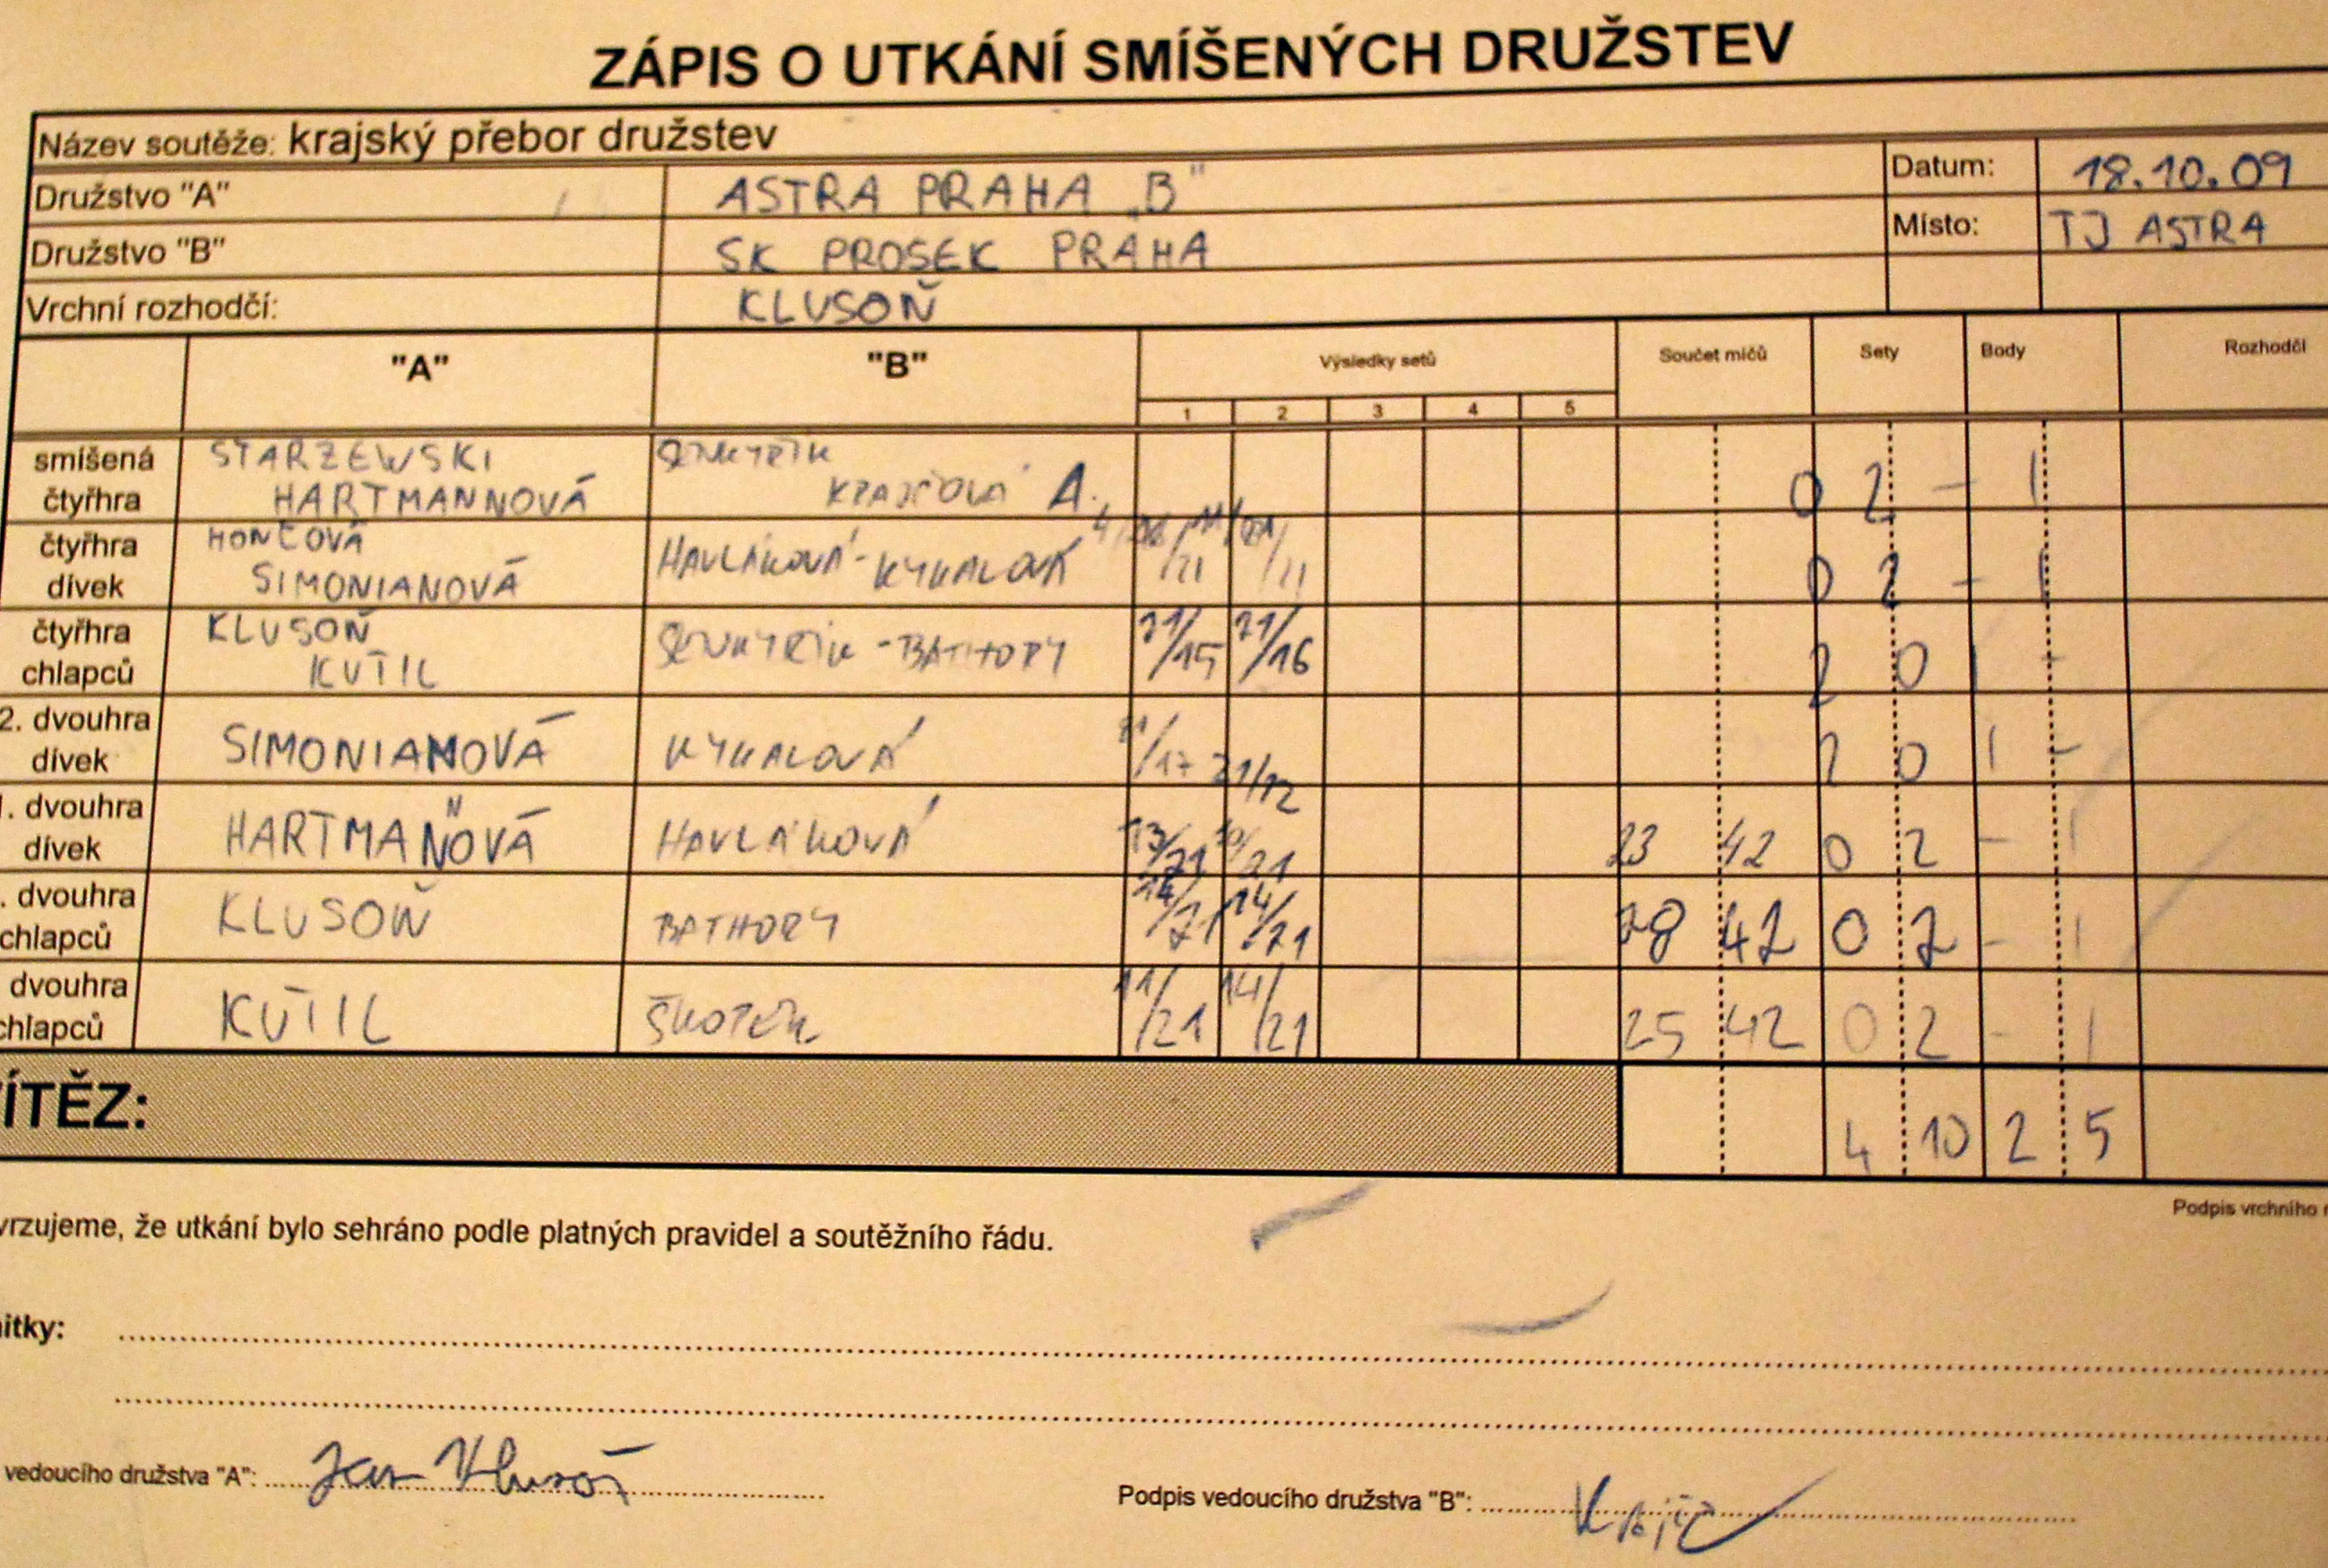 ZÁPIS O UTKÁNÍ SMÍŠENÝCH DRUŽSTEV
Název soutěže: krajský přebor družstev
Družstvo "A" ASTRA PRAHA „B" Datum: 18.10.09
Družstvo "B" SK PROSEK PRAHA Místo: TJ ASTRA
Vrchní rozhodčí: KLUSOŇ
"A" "B" Výsledky setů Součet míčů Sety Body Rozhodčí
1 2 3 4 5
smíšená STARZEWSKI
čtyřhra HARTMANNOVÁ A. 0 2 - 1
čtyřhra HONCOVÁ
dívek SIMONIANOVÁ HAVLÁKOVÁ - KYKALOVÁ /21 /21 0 2 - 1
čtyřhra KLUSOŇ
chlapců KUTIL - BATHORY 21/15 21/16 2 0 1 -
2. dvouhra
dívek SIMONIANOVÁ KYKALOVÁ 21/17 21/12 2 0 1 -
1. dvouhra
dívek HARTMANNOVÁ HAVLÁKOVÁ 13/21 10/21 23 42 0 2 - 1
. dvouhra
chlapců KLUSOŇ BATHORY 14/21 14/21 28 42 0 2 - 1
dvouhra
chlapců KUTIL 11/21 14/21 25 42 0 2 - 1
ÍTĚZ: 4 10 2 5
Podpis vrchního
vrzujeme, že utkání bylo sehráno podle platných pravidel a soutěžního řádu.
itky:
vedoucího družstva "A": Jan Klusoň
Podpis vedoucího družstva "B":